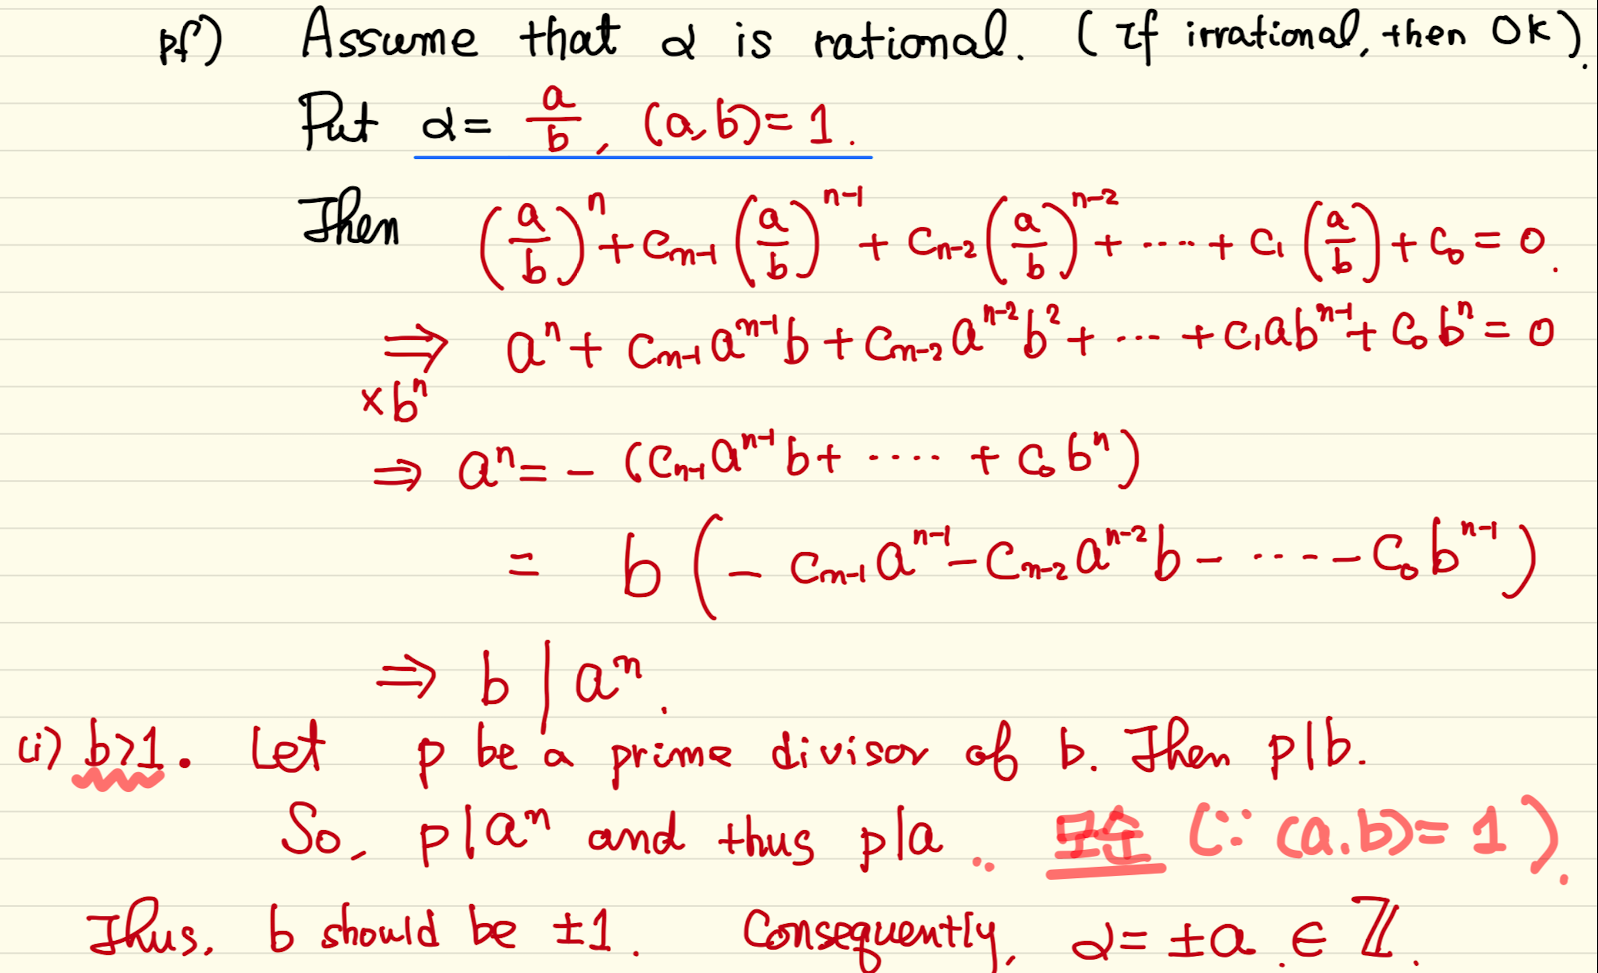 pf) Assume that α is rational. (If irrational, then OK).
Put α = a/b, (a,b)=1.
Then (a/b)^n + c_{n-1}(a/b)^{n-1} + c_{n-2}(a/b)^{n-2} + ···· + c_1(a/b) + c_0 = 0.
⇒ a^n + c_{n-1}a^{n-1}b + c_{n-2}a^{n-2}b^2 + ··· + c_1ab^{n-1} + c_0b^n = 0
×b^n
⇒ a^n = - (c_{n-1}a^{n-1}b + ···· + c_0b^n)
= b(- c_{n-1}a^{n-1} - c_{n-2}a^{n-2}b - ···· - c_0b^{n-1})
⇒ b | a^n.
(i) b>1. Let p be a prime divisor of b. Then p|b.
So, p|a^n and thus p|a.. 모순 (∵ (a.b)=1).
Thus, b should be ±1. Consequently, α = ±a ∈ ℤ.